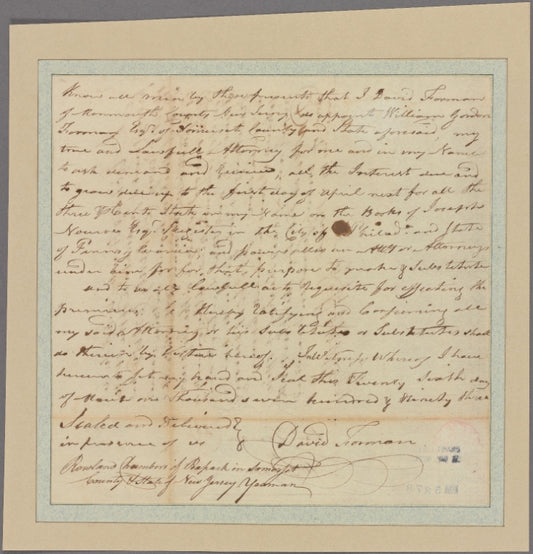 Know all men by these presents that I David Forman
of Monmouth County New Jersey do appoint William Gordon
Forman Esqr of Somerset County and State aforesaid my
true and Lawfull Attorney for me and in my Name
to ask demand and Receive all the Interest due and
to grow due up to the first day of April next for all the
three Cents Stock in my Name on the Books of Joseph
Nourse Esqr Register in the City of Philada and State
of Pennsylvania, and
under him for that purpose to make & Substitute
and to do all Lawfull acts requisite for effecting the
premises Hereby Ratifying and Confirming all
my said Attorney or his Substitute or Substitutes shall
do therein by Virtue hereof. In Witness Whereof I have
hereunto Set my hand and Seal this Twenty Sixth day
of one Thousand seven hundred & Ninety three
Sealed and Delivered
in presence of us David Forman
Rowland Chambers of in Somerset
County & State of New Jersey Yeoman